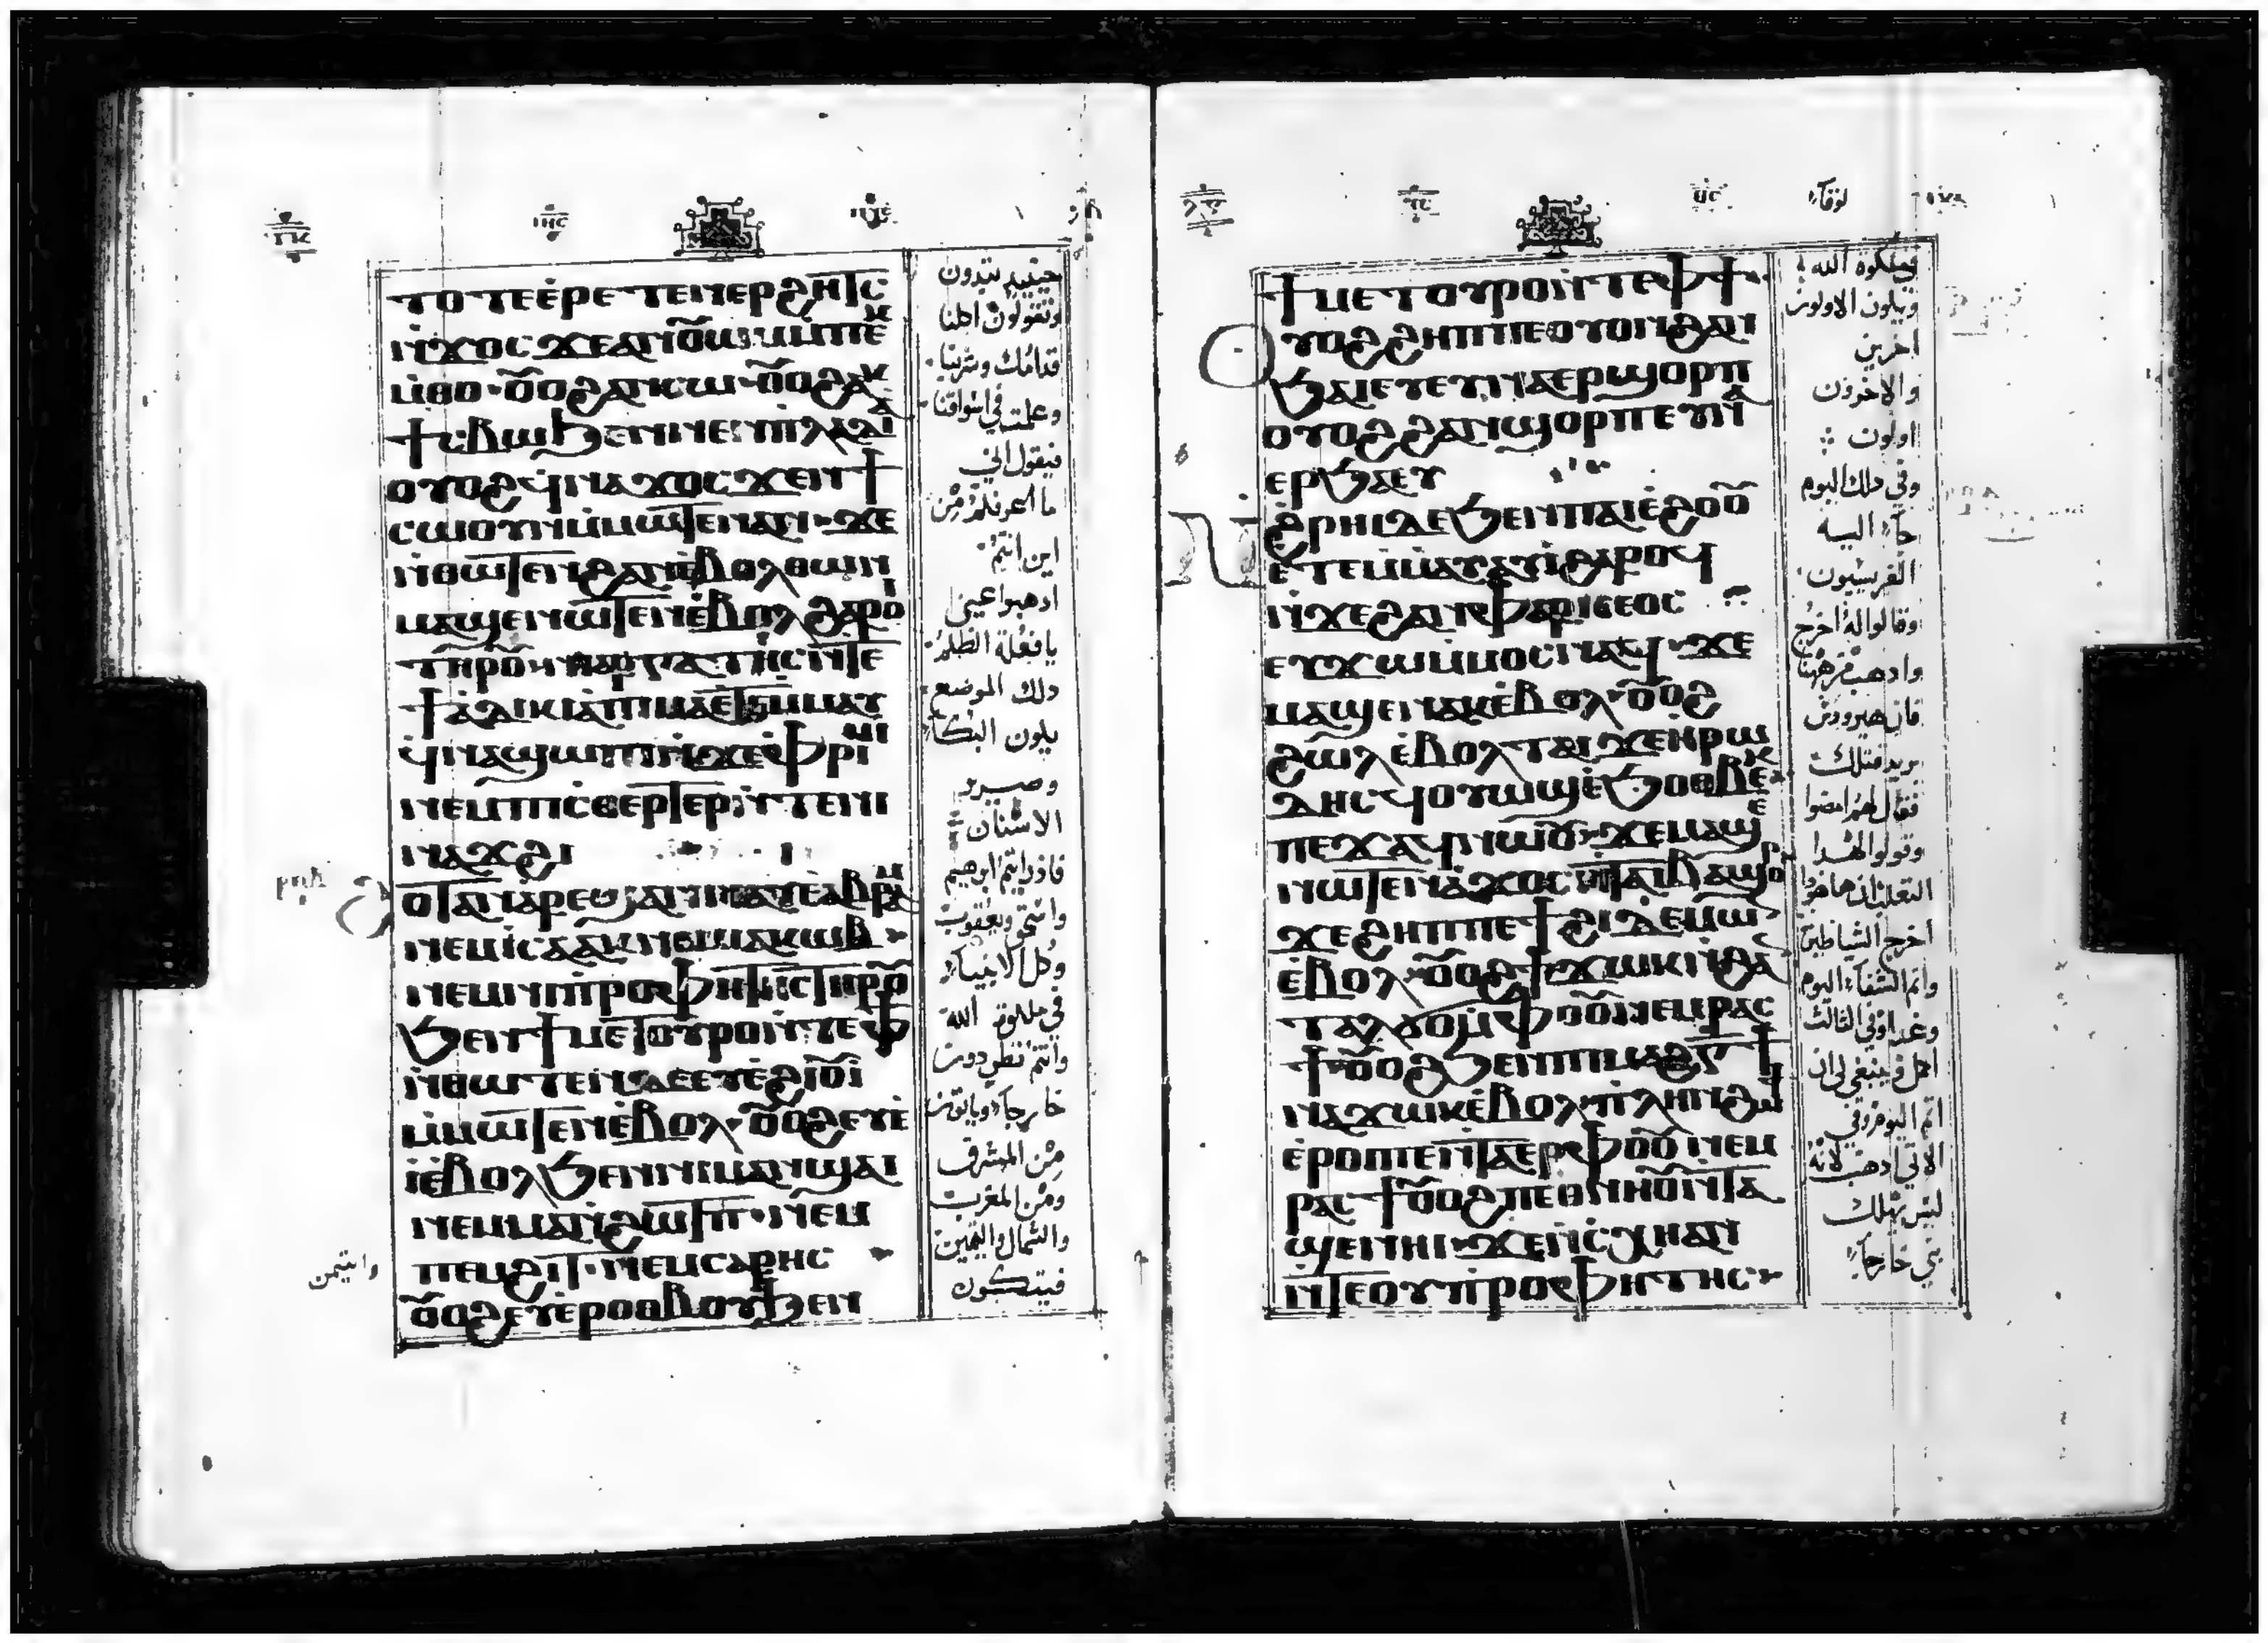 ⲧⲟⲧⲉⲉⲣⲉⲧⲉⲛⲉⲣϩⲏⲧⲥ
ⲛϫⲟⲥ ϫⲉⲁⲛⲟ̅ⲱⲙ ⲙⲡⲉⲕ
ⲙⲑⲟ · ⲟ̅ⲟϩⲁⲛⲥⲱ · ⲟ̅ⲟϩⲁⲕ
ϯⲥⲃⲱϧⲉⲛⲛⲉⲛⲡⲗⲁⲧⲓⲁ
ⲟⲩⲟϩϥⲛⲁϫⲟⲥϫⲉⲛϯ
ⲥⲱⲟⲩⲛⲙⲙⲱⲧⲉⲛⲁⲛ · ϫⲉ
ⲛⲑⲱⲧⲉⲛϩⲁⲛⲉⲃⲟⲗⲑⲱⲛ
ⲙⲁϣⲉⲛⲱⲧⲉⲛⲉⲃⲟⲗϩⲁⲣⲟⲓ
ⲧⲏⲣⲟ̅ ⲛⲓⲉⲣⲅⲁⲧⲏⲥⲛⲧⲉ
ϯⲁⲇⲓⲕⲓⲁⲡⲓⲙⲁⲉⲧⲉⲙⲙⲁⲩ
ϥⲛⲁϣⲱⲡⲓⲛϫⲉⲫⲣⲓⲙⲓ
ⲛⲉⲙⲡⲓⲥⲑⲉⲣⲧⲉⲣⲛⲧⲉⲛⲓ
ⲛⲁϫϩⲓ
ⲟⲧⲁⲛⲁⲣⲉⲧⲉⲛϣⲁⲛⲛⲁⲩⲉⲁⲃⲣⲁⲙ
ⲛⲉⲙⲓⲥⲁⲁⲕⲛⲉⲙⲓⲁⲕⲱⲃ
ⲛⲉⲙⲛⲓⲡⲣⲟⲫⲏⲧⲏⲥⲧⲏⲣⲟ̅
ϧⲉⲛϯⲙⲉⲧⲟⲩⲣⲟⲛⲧⲉⲫϯ
ⲛⲑⲱⲧⲉⲛⲇⲉⲉⲩⲉϩⲓⲟ̅ⲓ
ⲙⲙⲱⲧⲉⲛⲉⲃⲟⲗ · ⲟ̅ⲟϩⲉⲩⲉ
ⲓⲉⲃⲟⲗϧⲉⲛⲛⲓⲙⲁⲛϣⲁⲓ
ⲛⲉⲙⲙⲁⲛϩⲱⲧⲡ · ⲛⲉⲙ
ⲡⲉⲙϩⲓⲧ · ⲛⲉⲙⲥⲁⲣⲏⲥ
ⲟ̅ⲟϩⲉⲩⲉⲣⲟⲑⲃⲟⲩϧⲉⲛ
حينيذ تبتدون
وتقولون اكلنا
قدامك وشربنا
وعلمت في اسواقنا
فيقول اني
ما اعرفكم من
اين انتم
ادهبوا عني
يا فعلة الظلم
دلك الموضع
يكون البكاء
وصرير
الاسنان
فاذا رايتم ابرهيم
واسحق ويعقوب
وكل الانبياء
في ملكوت الله
وانتم تطردون
خارجا وياتون
من المشرق
ومن المغرب
والشمال واليمين
فيتكون
ϯⲙⲉⲧⲟⲩⲣⲟⲛⲧⲉⲫϯ
ⲟⲩⲟϩϩⲏⲡⲡⲉⲟⲩⲟⲛϩⲁⲛ
ϧⲁⲉⲩⲉⲩⲛⲁⲉⲣϣⲟⲣⲡ
ⲟⲩⲟϩϩⲁⲛϣⲟⲣⲡⲉⲩⲛⲁ
ⲉⲣϧⲁⲉⲩ
ⲛϩⲣⲏⲓⲇⲉϧⲉⲛⲡⲁⲓⲉϩⲟⲟ̅
ⲉⲧⲉⲙⲙⲁⲩⲁⲩⲓϩⲁⲣⲟϥ
ⲛϫⲉϩⲁⲛⲫⲁⲣⲓⲥⲉⲟⲥ
ⲉⲩϫⲱⲙⲙⲟⲥⲛⲁϥ · ϫⲉ
ⲙⲁϣⲉⲛⲁⲕⲉⲃⲟⲗ · ⲟ̅ⲟϩ
ϩⲱⲗⲉⲃⲟⲗⲧⲁⲓϫⲉⲏⲣⲱ
ⲇⲏⲥϥⲟⲩⲱϣⲉϧⲟⲑⲃⲉⲕ
ⲡⲉϫⲁϥⲛⲱⲟ̅ · ϫⲉⲙⲁϣⲉ
ⲛⲱⲧⲉⲛⲁϫⲟⲥⲛⲧⲁⲓⲃⲁϣⲟⲣ
ϫⲉϩⲏⲡⲡⲉϯϩⲓⲇⲉⲙⲱⲛ
ⲉⲃⲟⲗ · ⲟ̅ⲟϩϯϫⲱⲕⲛϩⲁⲛ
ⲧⲁⲗϭⲟⲙⲫⲟⲟ̅ⲛⲉⲙⲣⲁⲥ
ϯ · ⲟ̅ⲟϩϧⲉⲛⲡⲓⲙⲁϩⲅϯ
ⲛⲁϫⲱⲕⲉⲃⲟⲗ · ⲡⲗⲏⲛϩⲱϯ
ⲉⲣⲟⲓⲡⲉⲛⲧⲁⲉⲣⲫⲟⲟ̅ ⲛⲉⲙ
ⲣⲁⲥϯⲟ̅ⲟϩⲡⲉⲑⲛⲏⲟ̅ⲛⲧⲁ
ϣⲉⲛⲏⲓ · ϫⲉⲛⲥϣⲏⲁⲛ
ⲛⲧⲉⲟⲩⲡⲣⲟⲫⲏⲧⲏⲥ
لوقا
ملكوة الله
ويكون الاولون
اخرين
والاخرون
اولون
وفي دلك اليوم
جاء اليه
الفريسيون
وقالوا له اخرج
وادهب من ههنا
فان هيرودس
يريد قتلك
فقال لهم امضوا
وقولوا لهدا
الثعلب ان هاهودا
اخرج الشياطين
واتم الشفاء اليوم
وغدا وفي الثالث
اكمل فينبغي لي ان
اتم اليوم وفي
الاتي ادهب لانه
ليس يهلك
نبي خارجا